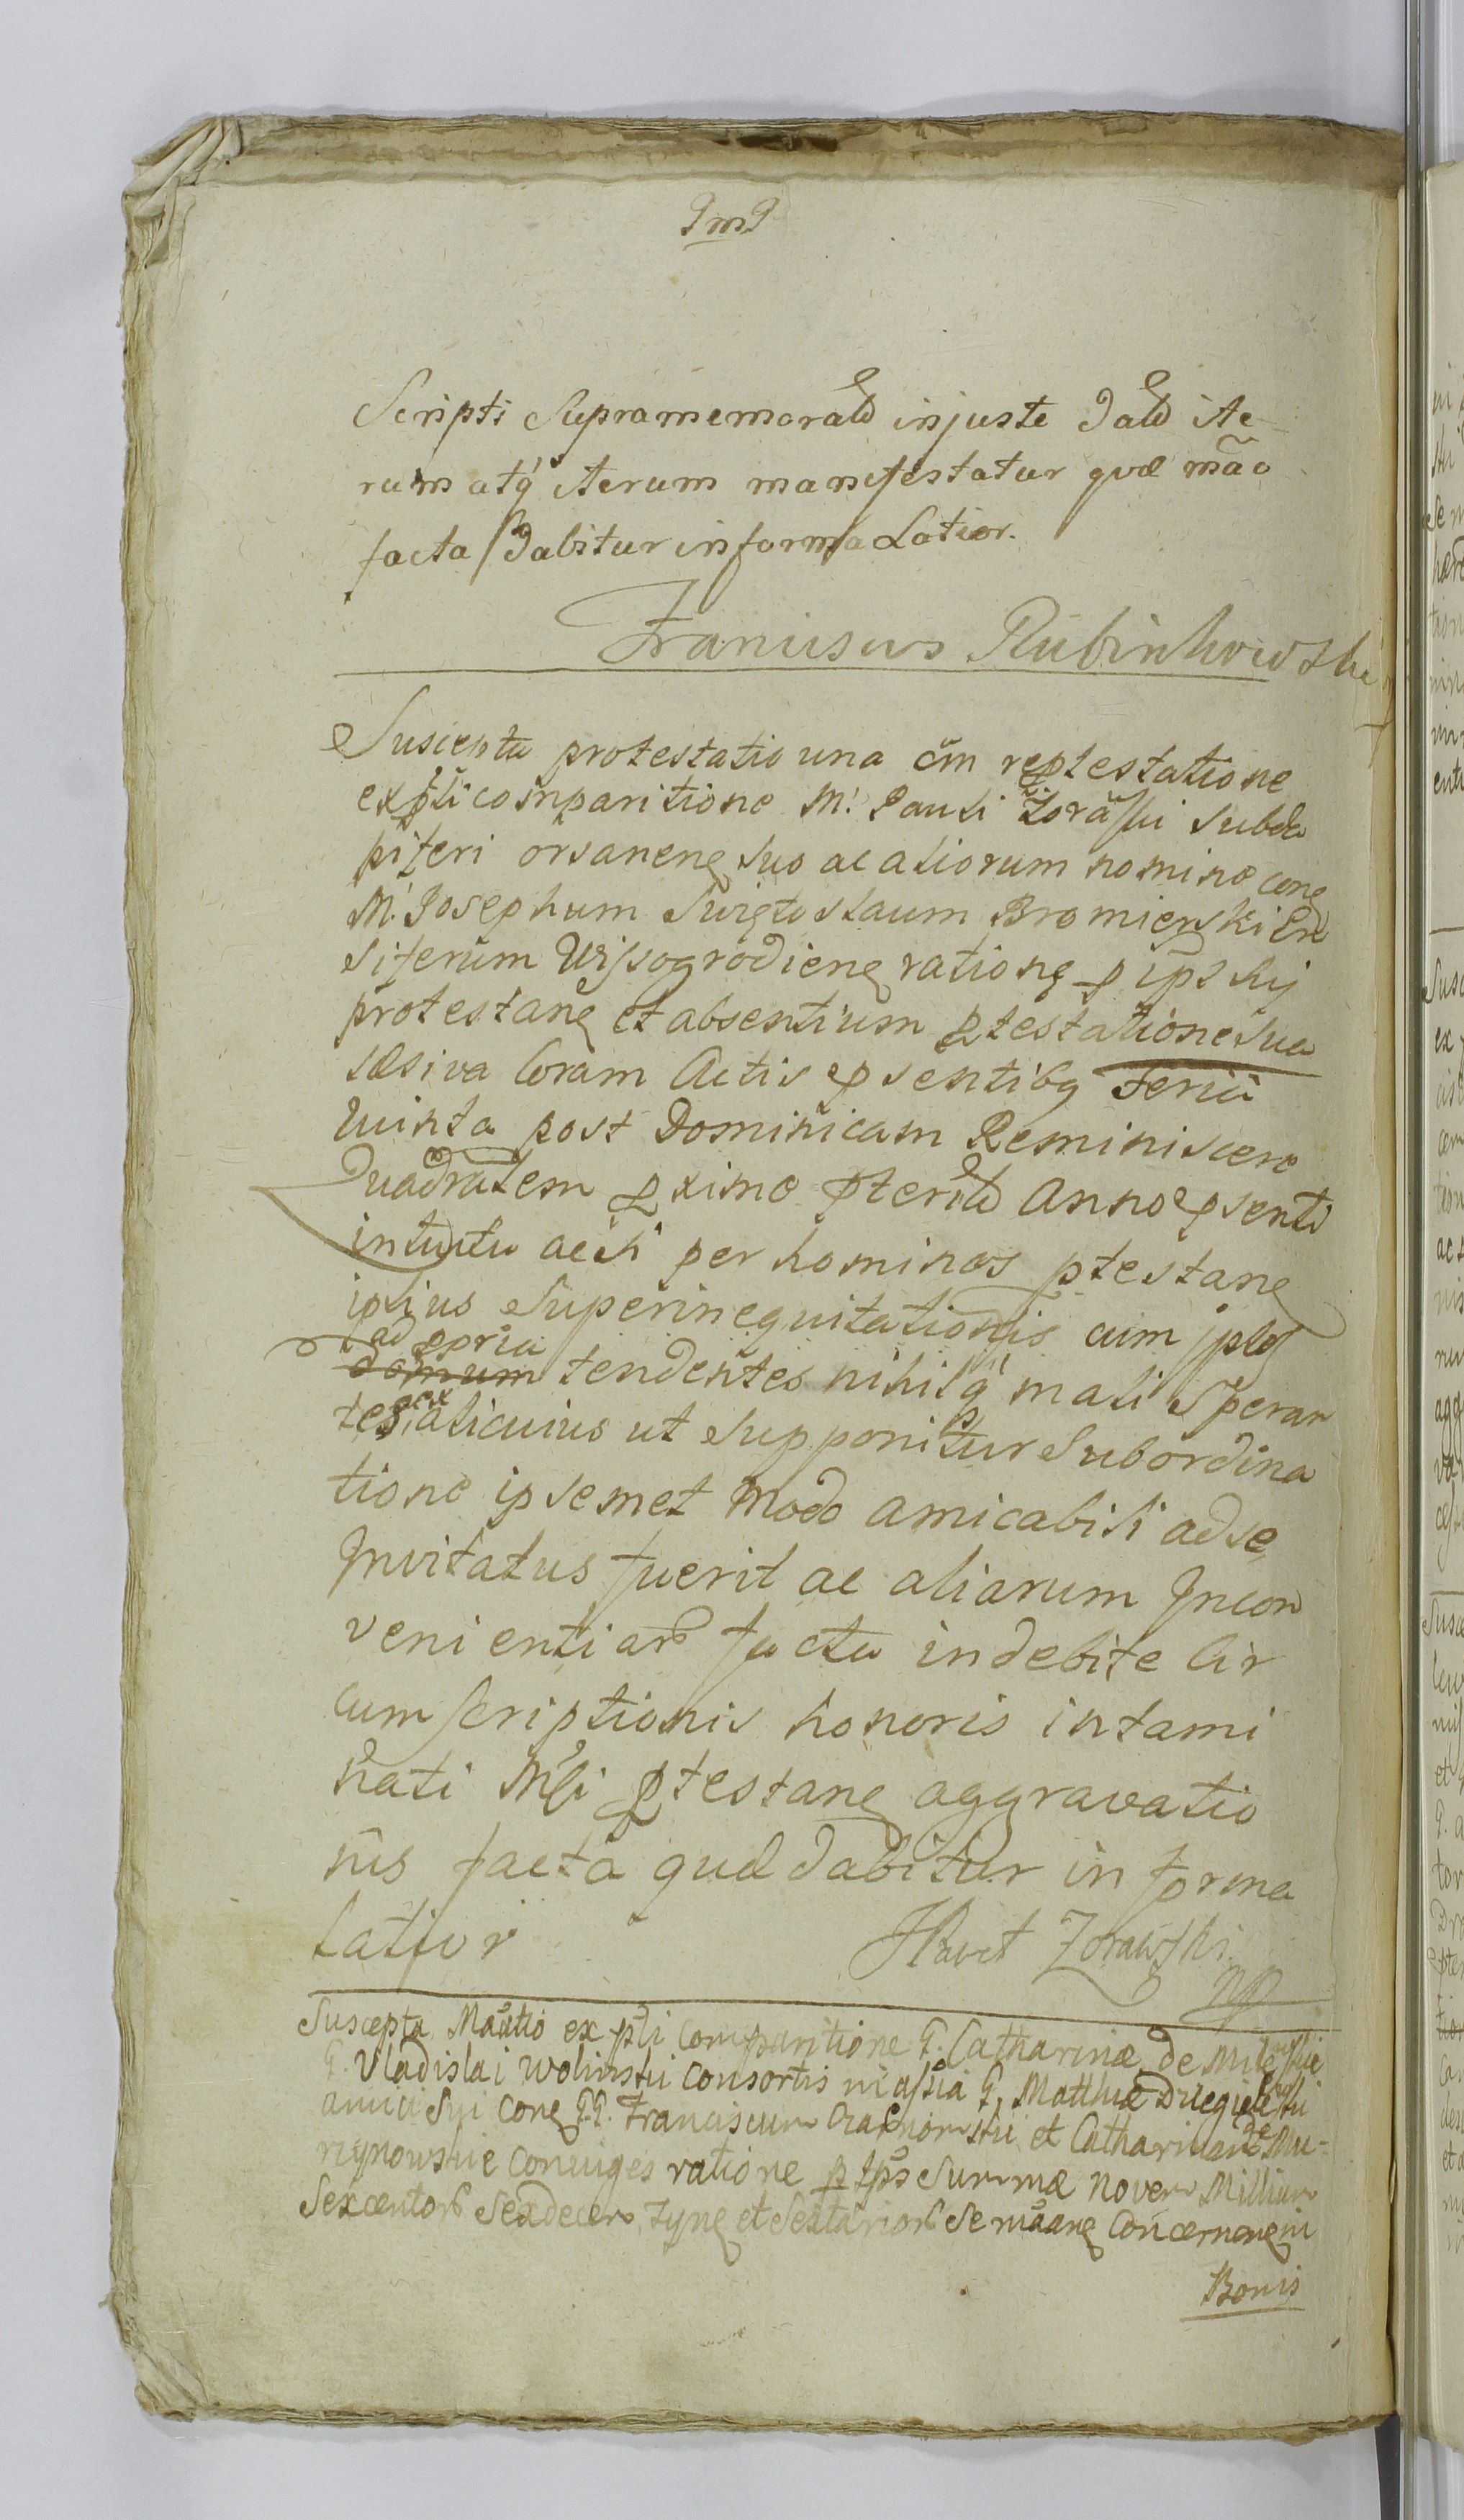 Scripti Supramemorato injuste dato ite
rum atq iterum manifestatur quæ mão
facta dabitur in forma Latior.
Franciscus Rubinkowski
Suscepta protestatio una cũm reptestatione
ex pŝti comparitione M. Pauli Zorãski Subda
piferi orsanens suo ac aliorum nomine cone
M. Josephum Swiętoslaum Bromierski En
siferum Wissogrodiens ratione
protestans et absentium ptestatione sua
Coram Actis psentibq Feria
Quinta post Dominicam Reminiscere
Quadralem pximo pterito Anno psenti
intuitu per homines ptestans
ipsius Superinequitationis cum ipso
ad ppria
domum tendentes nihilq mali Speran
tes ex alicuius ut Supponitur Subordina
tione ipsemet modo amicabili ad se
Invitatus fuerit ac aliarum Incon
venientiar facta indebite Cir
cumscriptionis honoris intami
nati Mfi ptestans aggravatio
nis facta quæ dabitur in forma
latior
Pawet Zorawski
mp
Suscepta Mãtio ex pŝti Comparitione G. Catharinæ de
G. Vladislai Wolinski Consortis G. Matthiæ
amici Sui Cone GG. Franciscum et Catharinam de Mu=
rzynowskie Conuiges ratione Summæ Novem Millium
Sexcentor Sexdecem Tyns et Sextarior Se Concernens in
Bonis